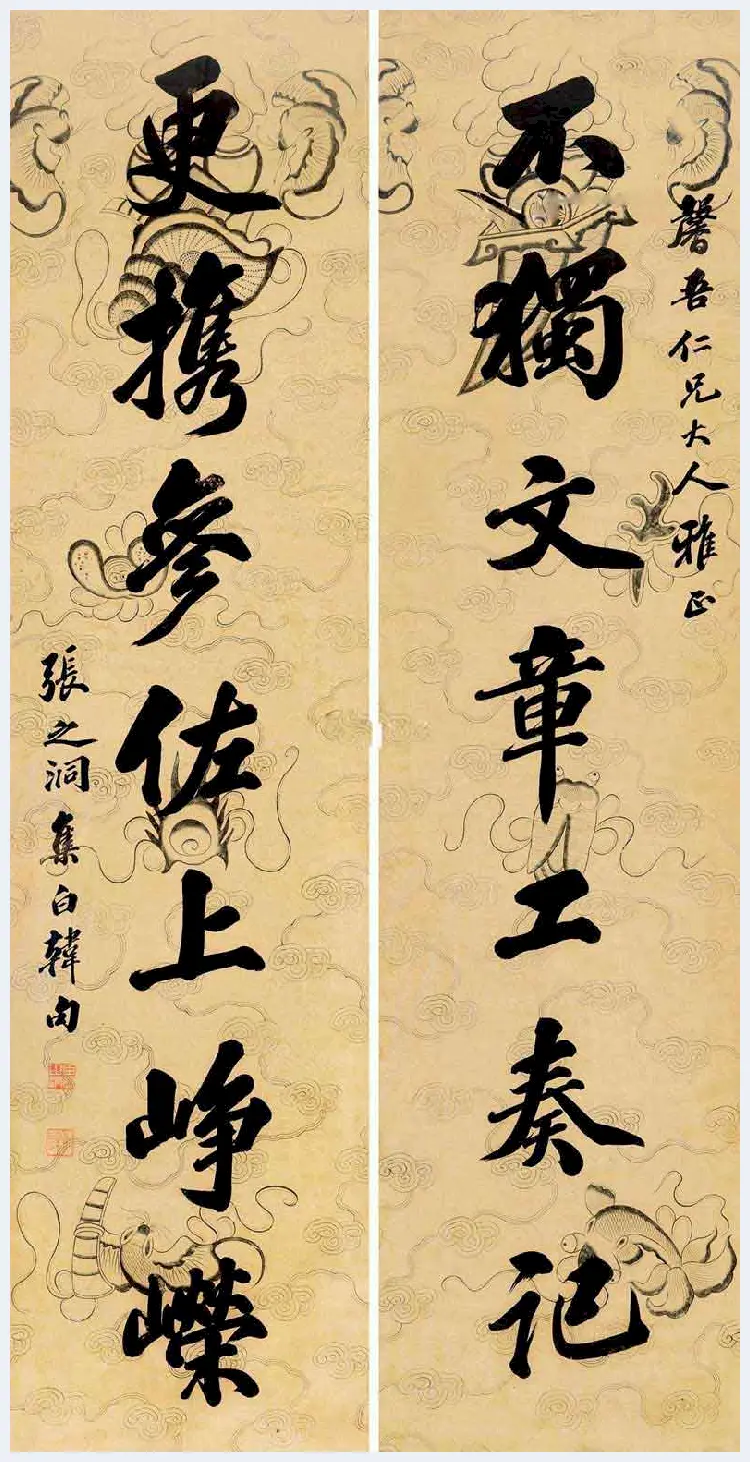 馨吾仁兄大人雅正
不獨文章工奏記
更携參佐上崢嶸
張之洞集白韓句